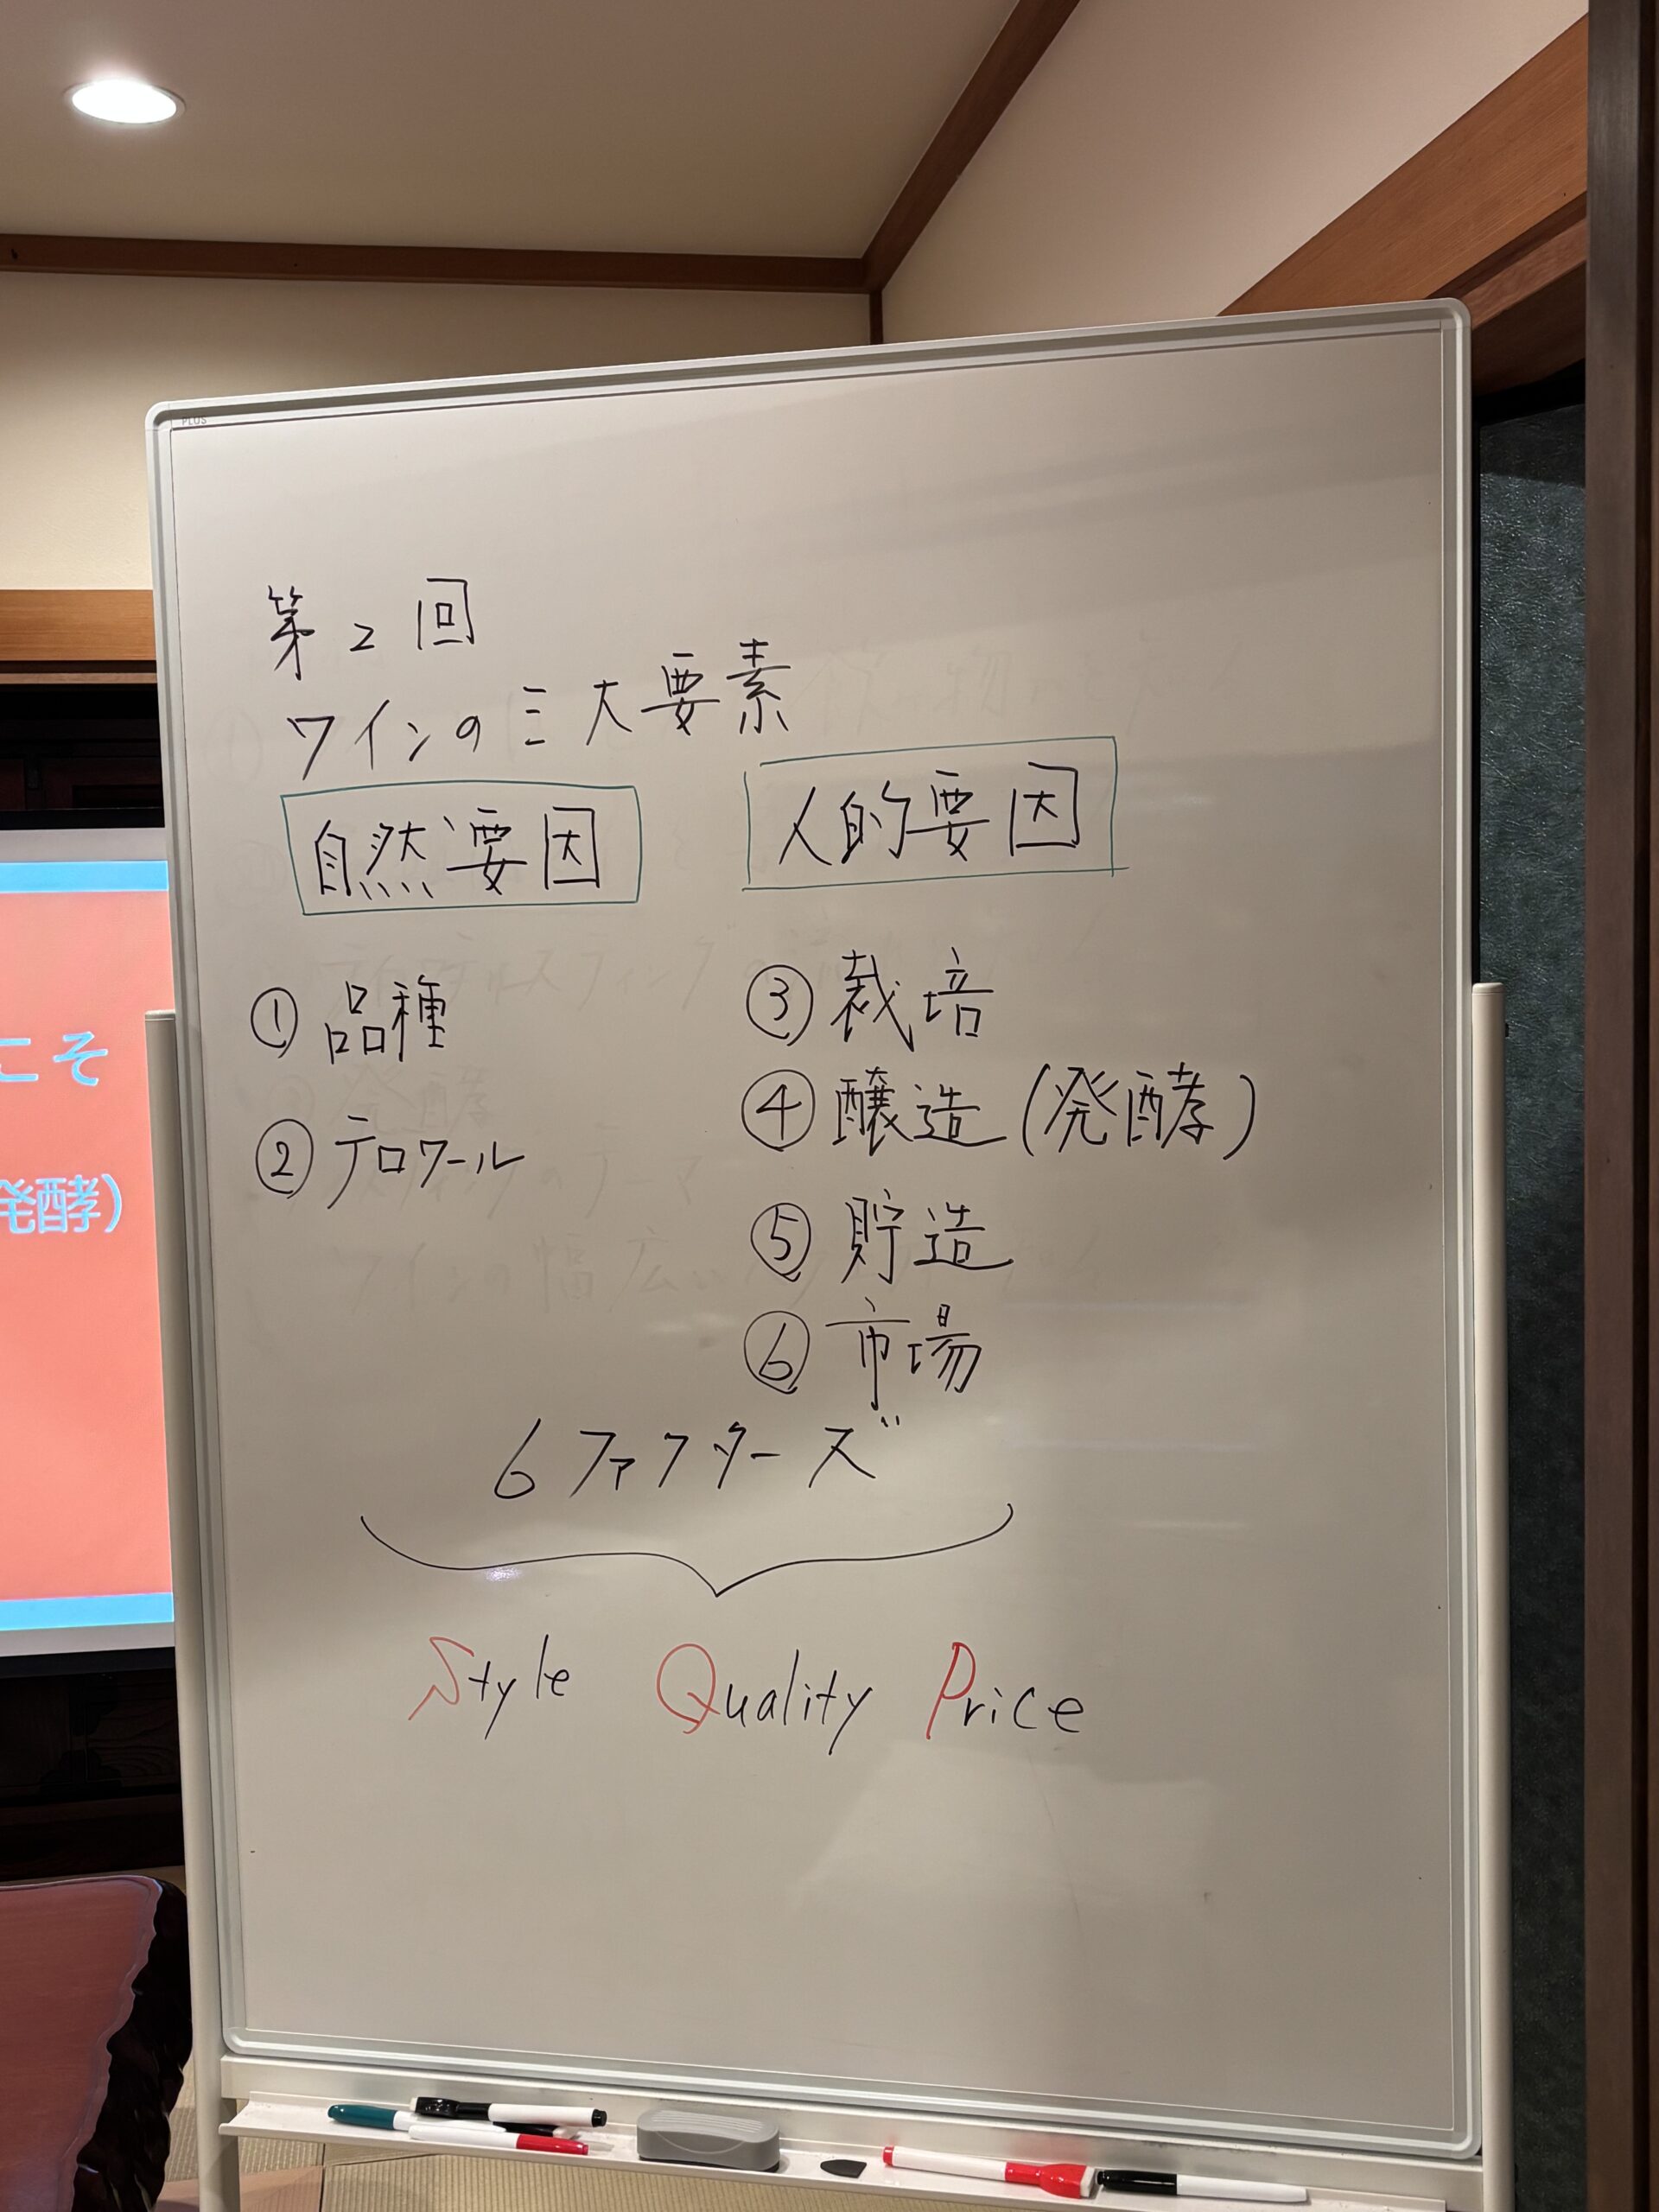 PLUS
第2回
ワインの三大要素
自然要因
人的要因
① 品種
② テロワール
③ 栽培
④ 醸造(発酵)
⑤ 貯造
⑥ 市場
6ファクターズ
Style Quality Price
こそ
発酵)